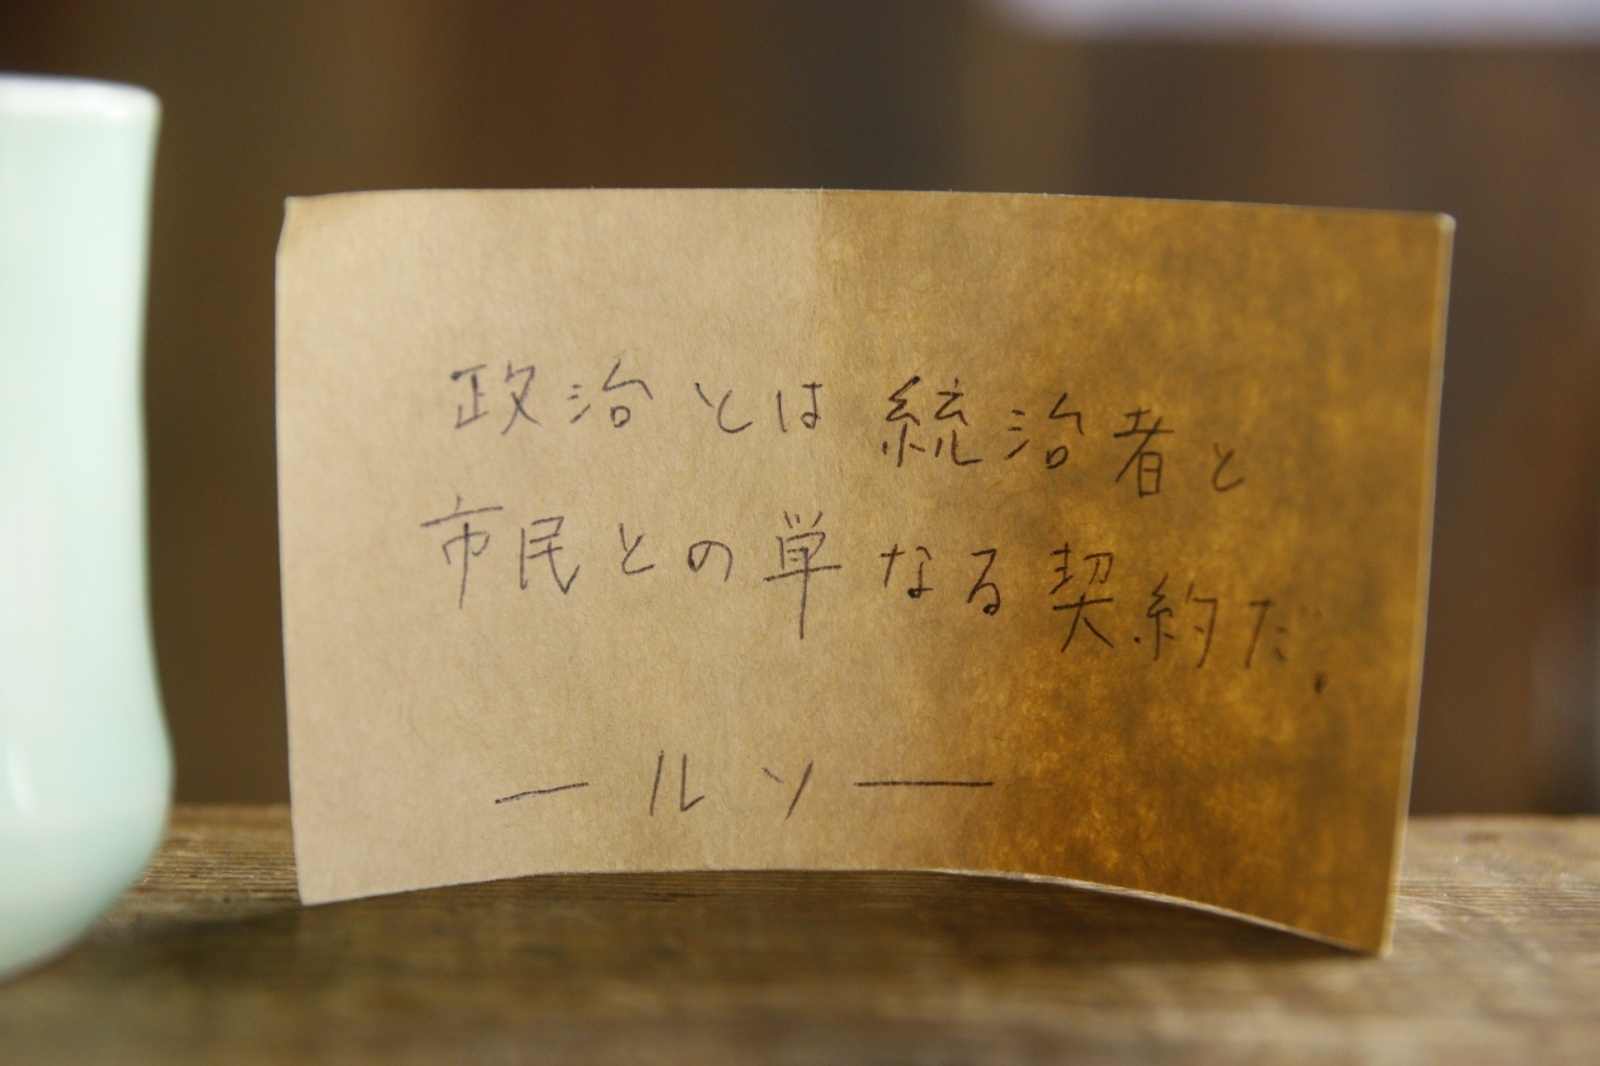 政治とは統治者と
市民との単なる契約だ.
— ルソー